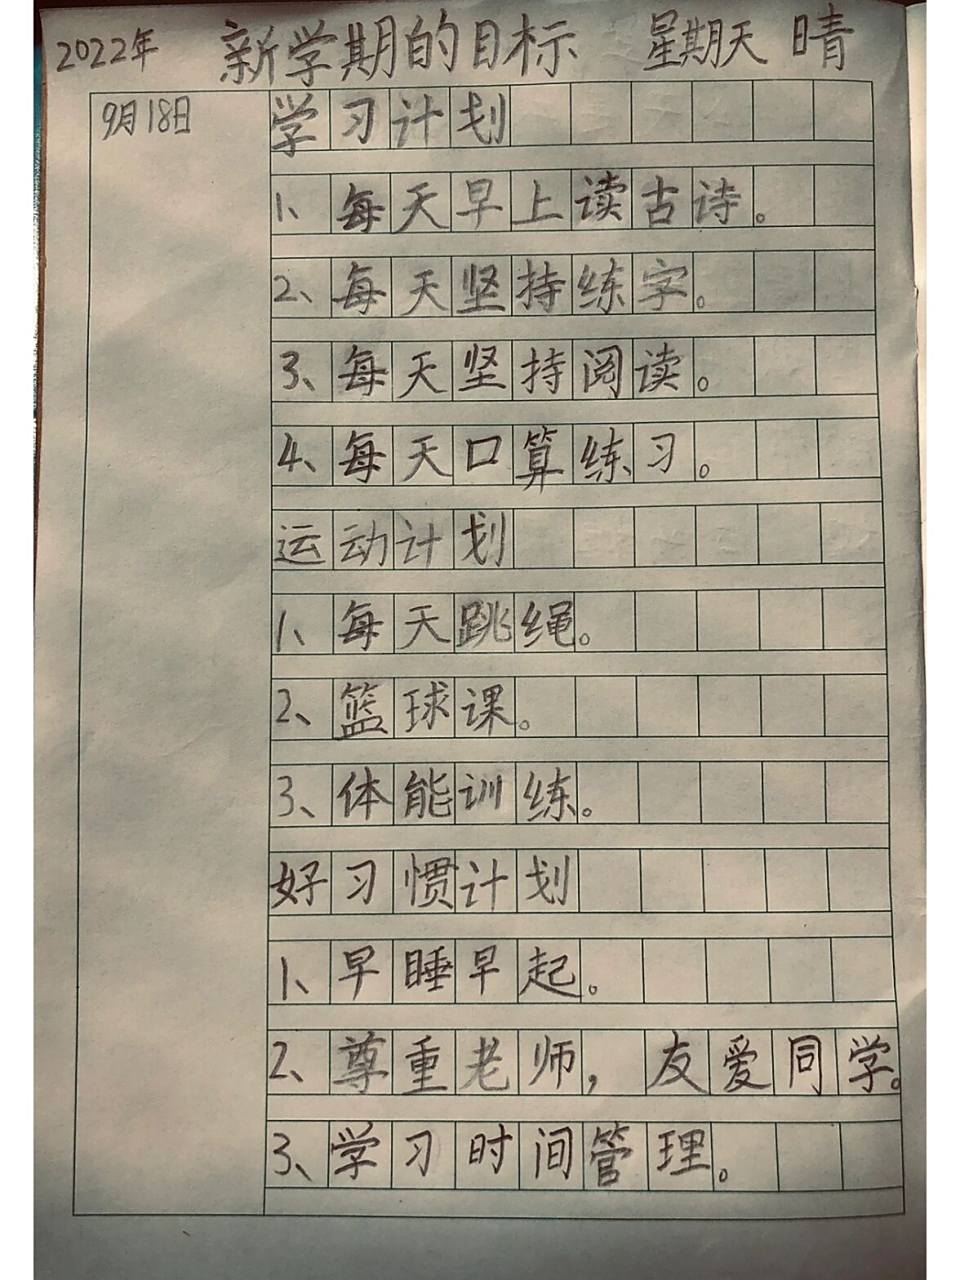 2022年 新学期的目标 星期天 晴
9月18日
学习计划
1、每天早上读古诗。
2、每天坚持练字。
3、每天坚持阅读。
4、每天口算练习。
运动计划
1、每天跳绳。
2、篮球课。
3、体能训练。
好习惯计划
1、早睡早起。
2、尊重老师，友爱同学。
3、学习时间管理。